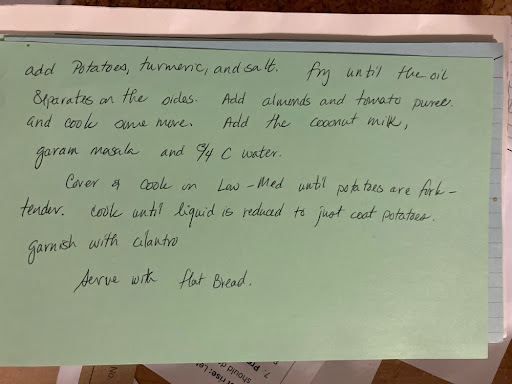 add Potatoes, turmeric, and salt. Fry until the oil
Separates on the sides. Add almonds and tomato puree.
and cook some more. Add the coconut milk,
garam masala and 3/4 C water.
Cover & Cook on Low-Med until potatoes are fork-
tender. Cook until liquid is reduced to just coat potatoes.
Garnish with cilantro
Serve with flat Bread.
7. Pre
should d
t rise: Le
No